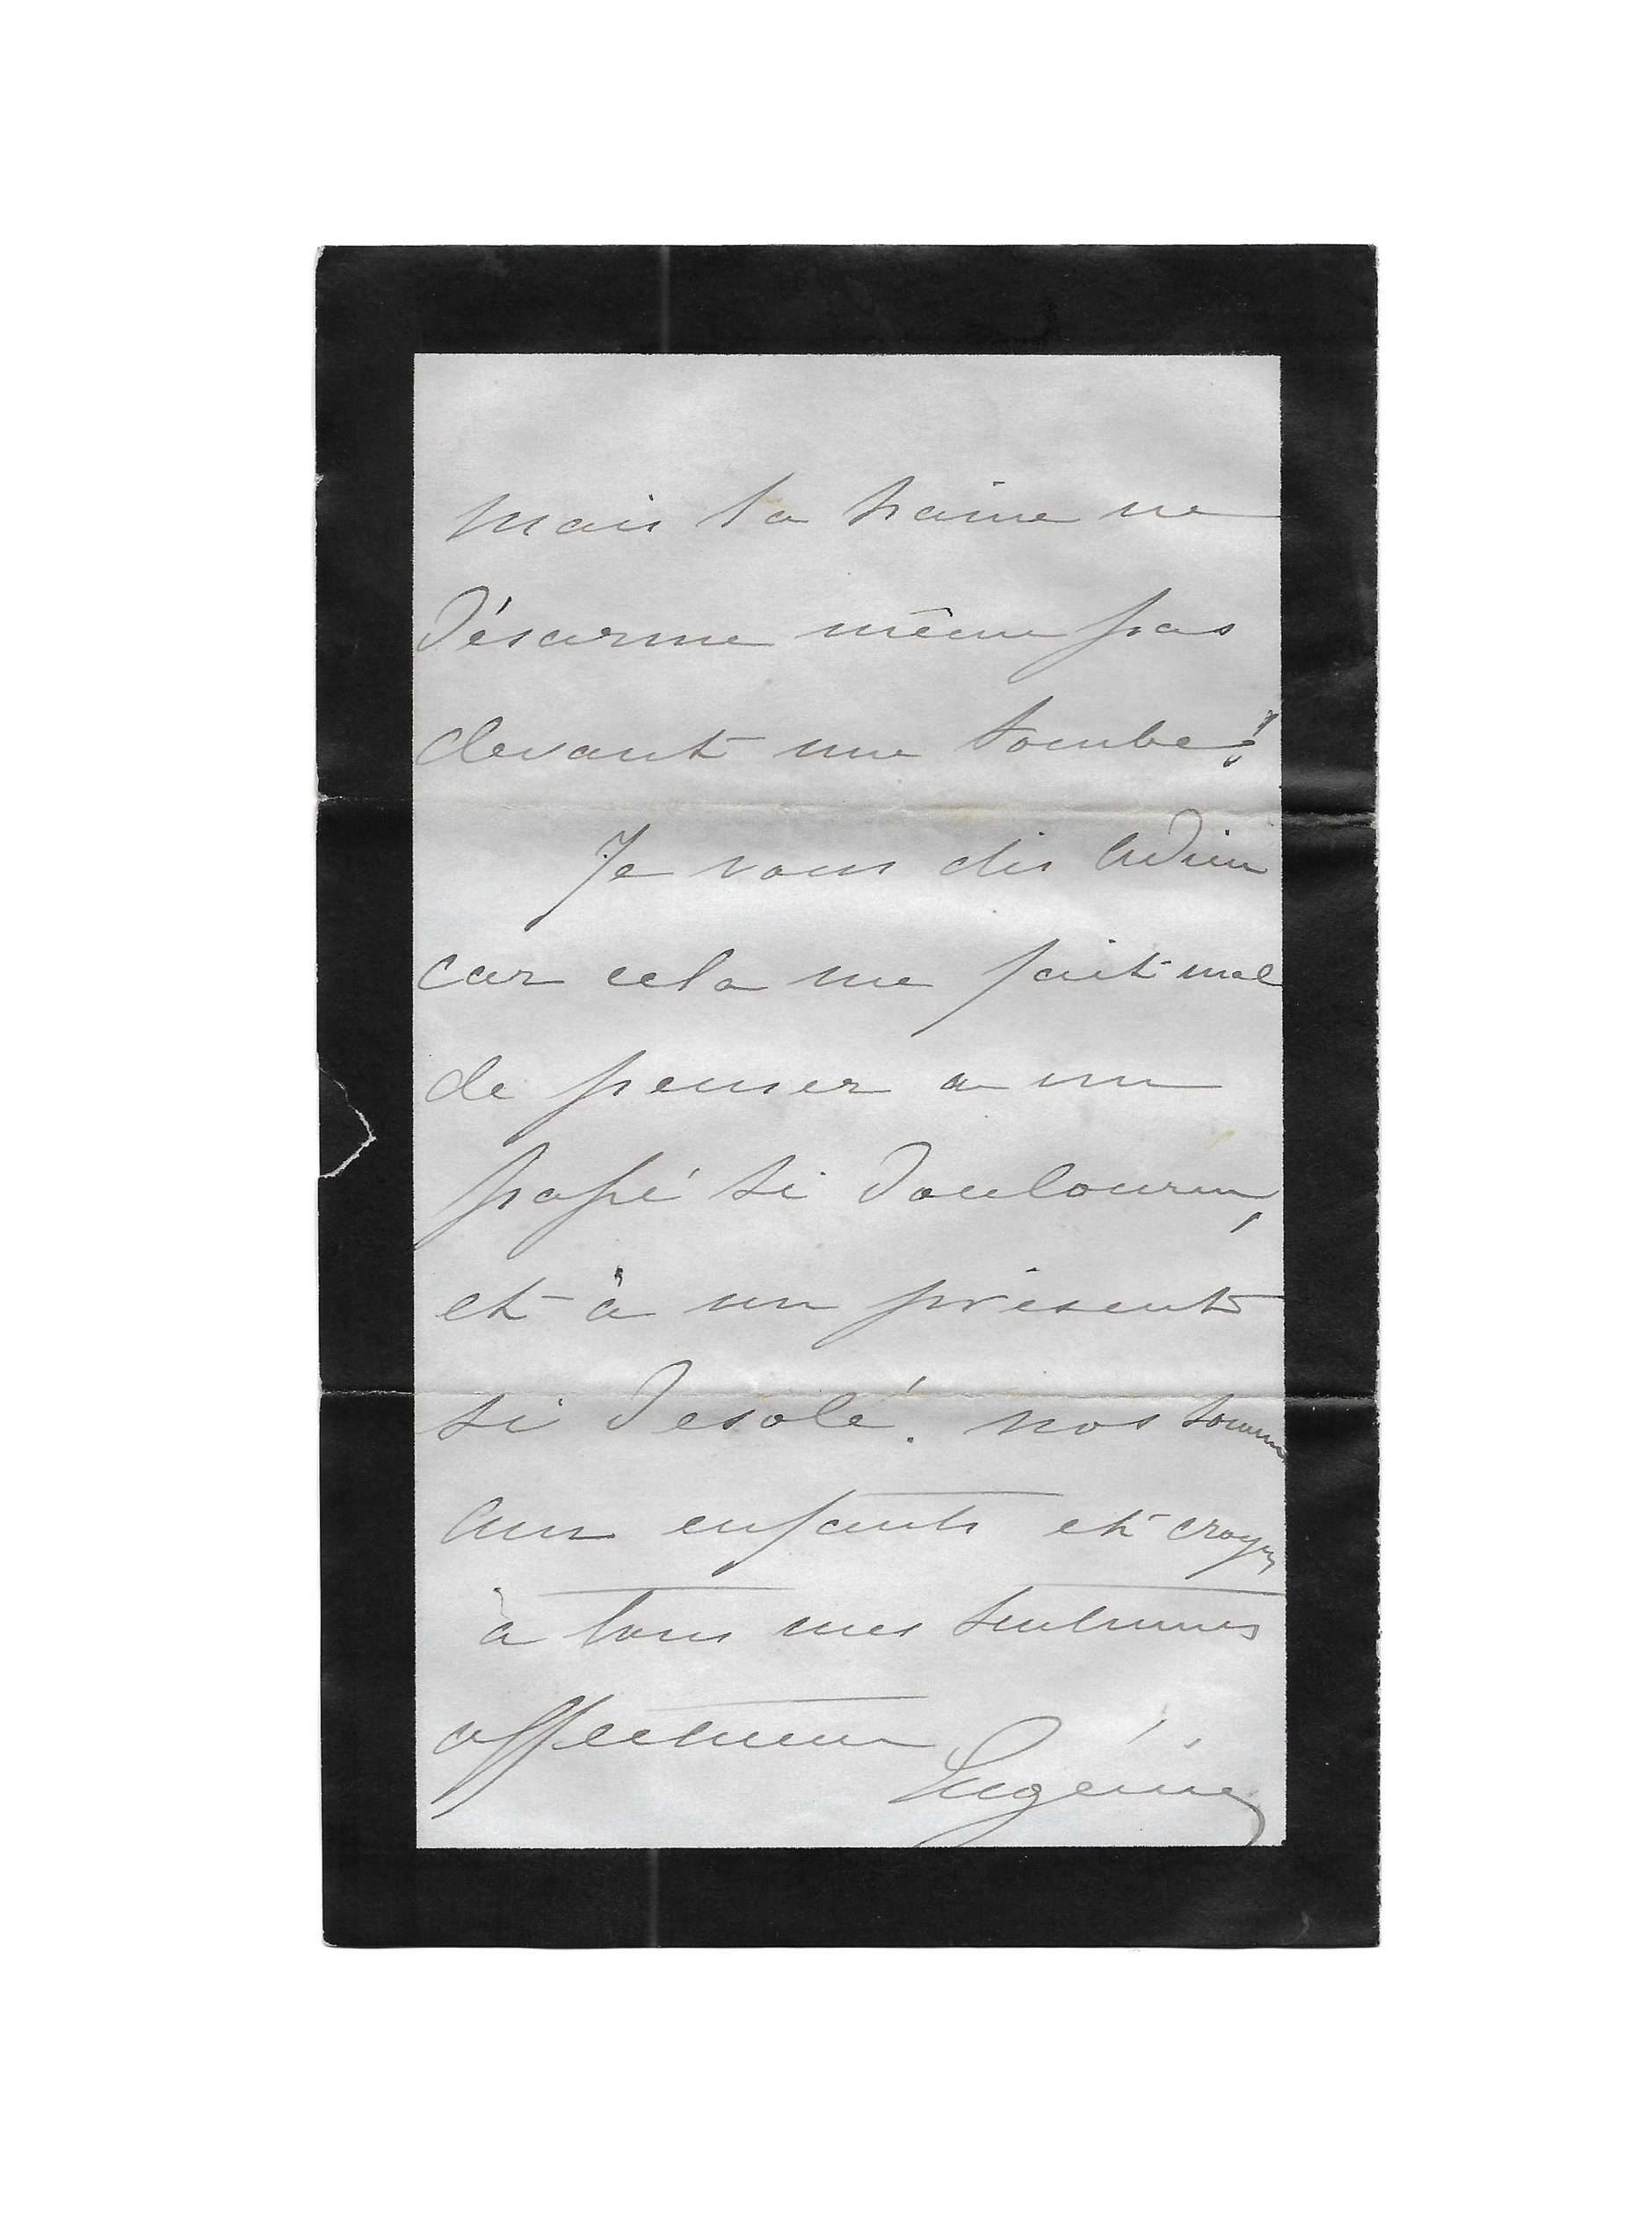 mais la haine ne
désarme même pas
devant une tombe!
Je vous dis Adieu
car cela me fait mal
de penser a un
passé si douloureux,
et à un présent
si désolé. nos
aux enfants et croyez
à tous mes sentiments
affectueux Eugénie